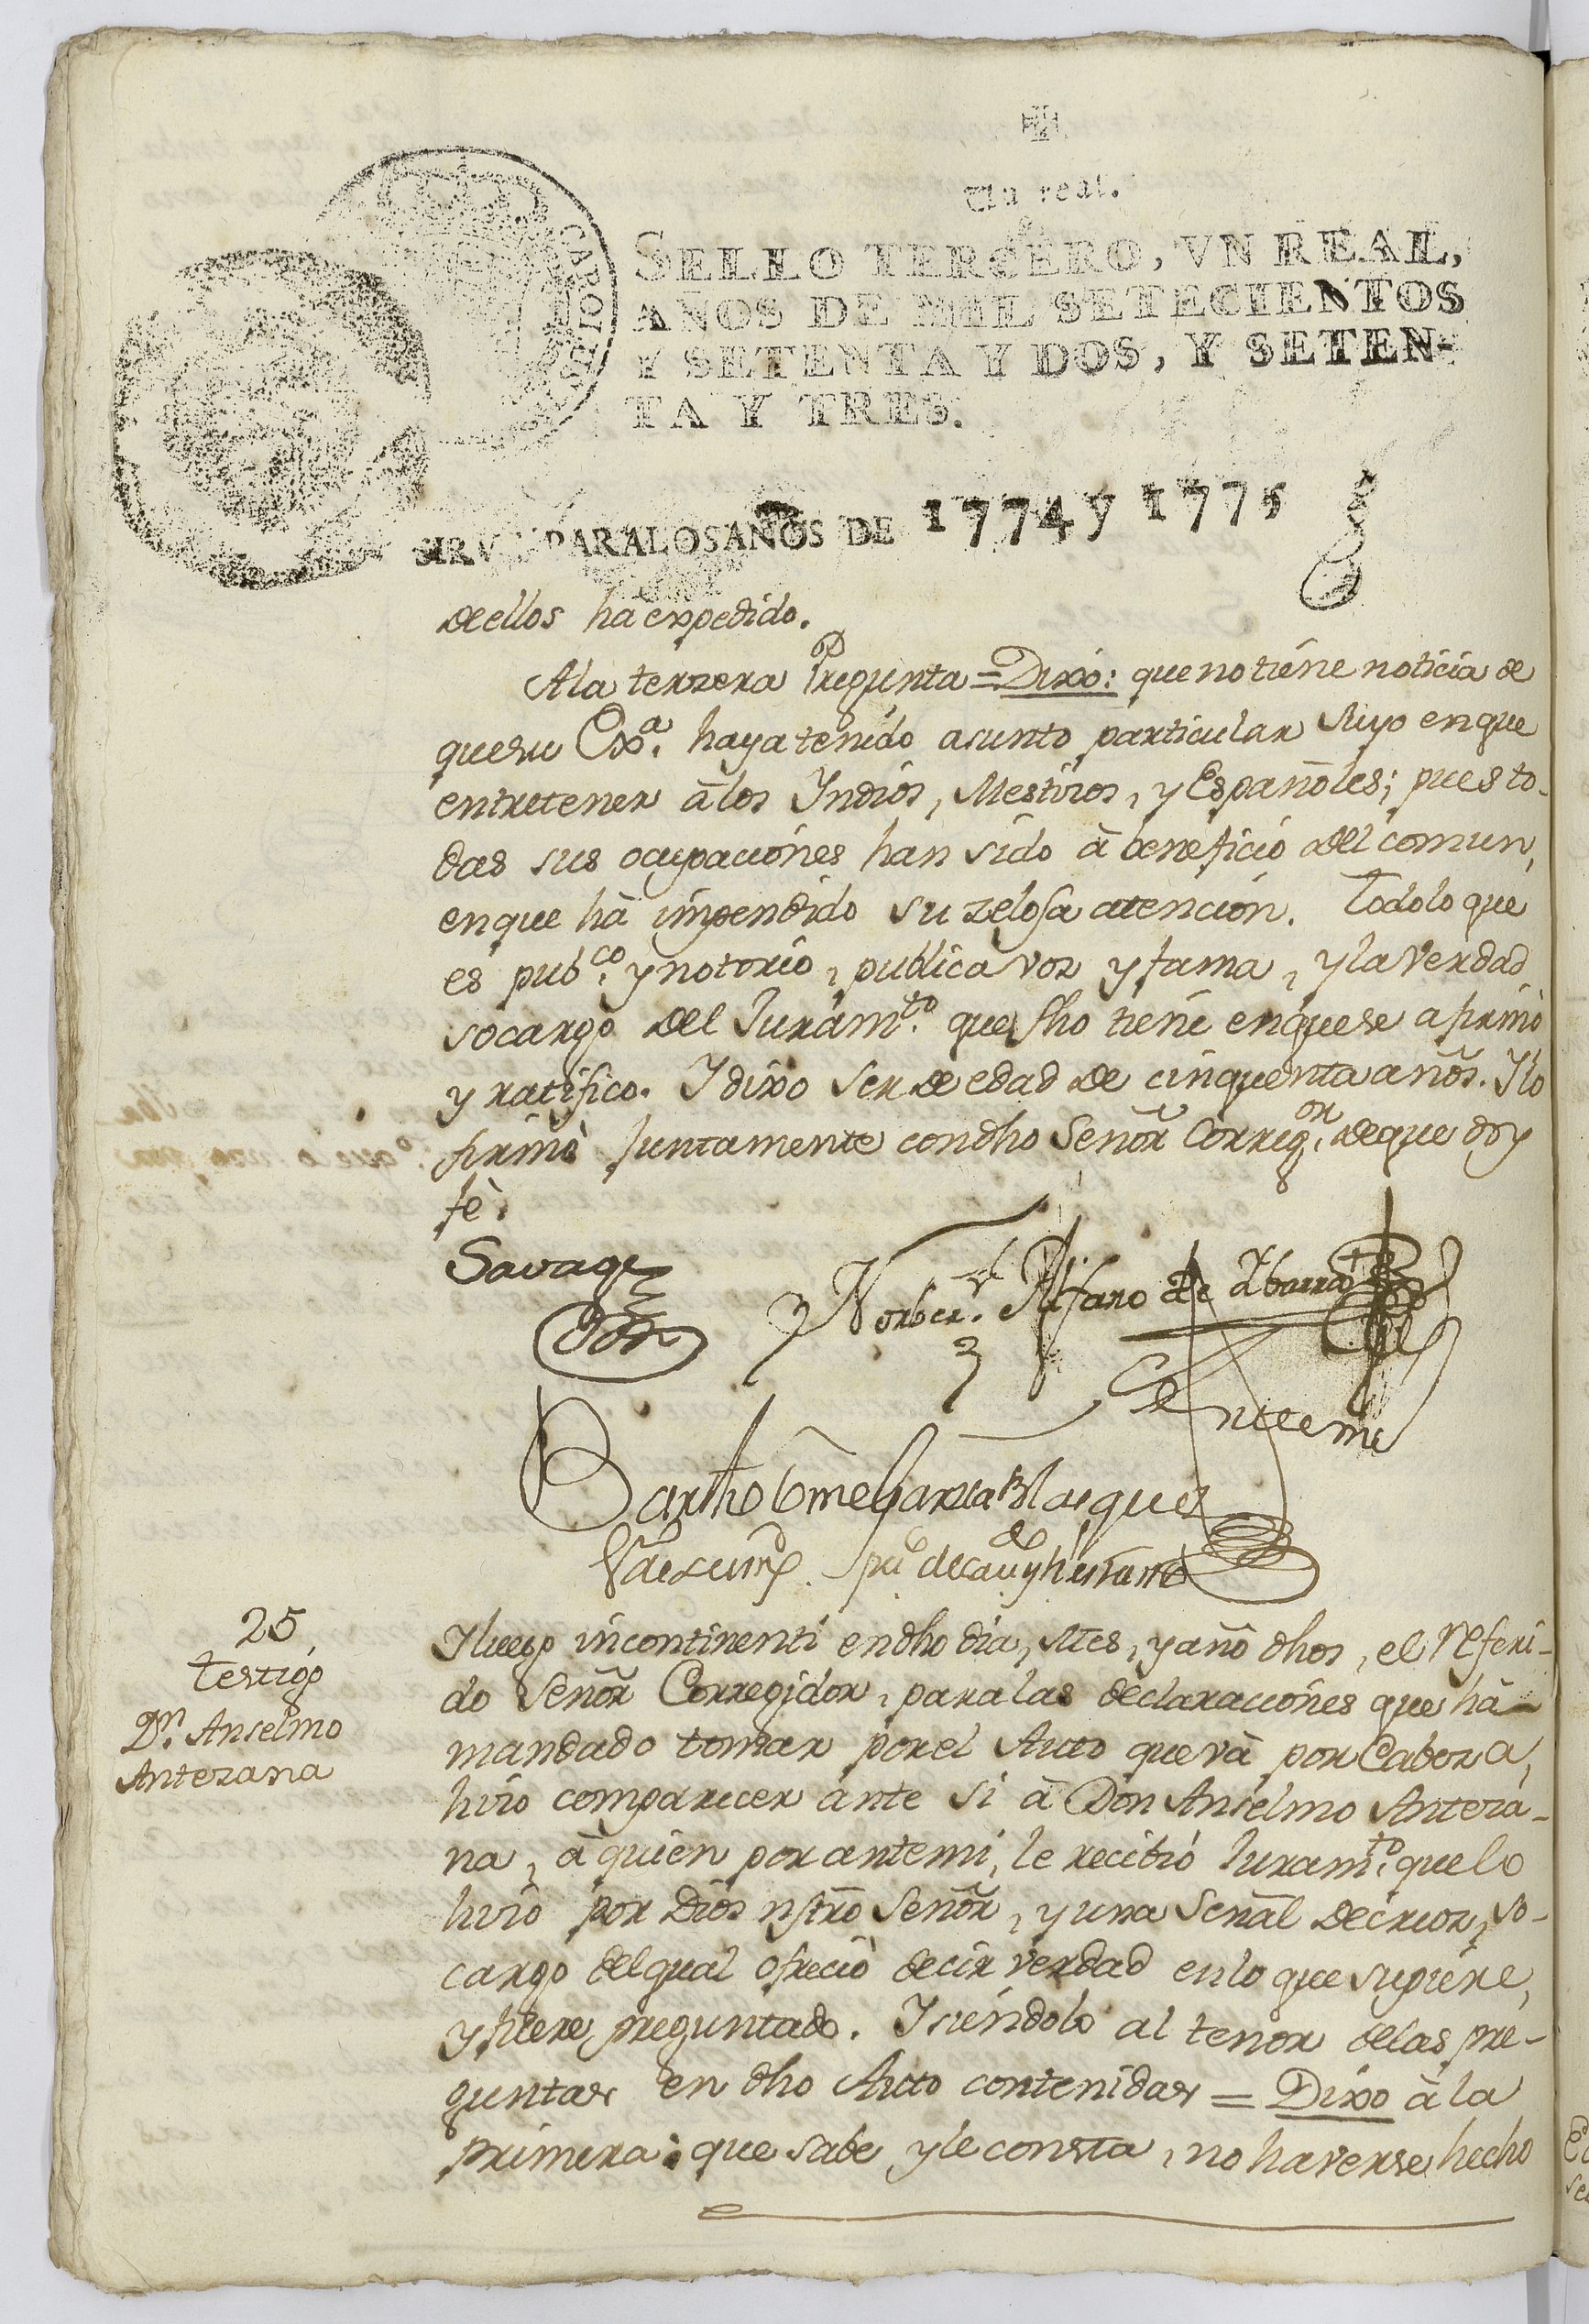 Un real.
SELLO TERCERO, VN REAL,
AÑOS DE MIL SETECIENTOS
Y SETENTA Y DOS, Y SETEN-
TA Y TRES.
CAROLUS
SIRVE PARA LOS AÑOS DE 1774 y 1775
de ellos ha expedido.
A la terzera Pregunta = Dixo: que no tiene noticia de
que su Exª. haya tenido asunto particular suyo en que
entretener â los Yndios, Mestizos, y Españoles; pues to-
das sus ocupaciones han sido à beneficio del comun,
en que hà impendido su zelosa atencion. Todo lo que
es pubᶜᵒ. y notorio, publica voz y fama, y la verdad
socargo del Juramᵗᵒ. que fho tiene en que se afirmò
y ratifico. Y dixo ser de edad de cinquenta años. Y lo
firmò Juntamente con dho Señor Corregᵒʳ. de que doy
fè.
Savage
Norberᵗᵒ. Alfaro de Ybarra
Ante mi
Bartholome Garzia Blasquez
25
Testigo
Dⁿ. Anselmo
Antezana
Y luego incontinenti en dho dia, Mes, y año dhos, el referi-
do Señor Corregidor, para las declaraciones que hà
mandado tomar por el Auto que và por Cabeza,
hizo comparecer ante si à Don Anselmo Anteza-
na, à quien por ante mi, le recibiò Juramᵗᵒ. que lo
hizo por Dios nŕo Señor, y una señal de cruz, so-
cargo del qual ofreciò decir verdad en lo que supiere,
y fuere preguntado. Y siendolo al tenor de las pre-
guntas en dho Auto contenidas = Dixo à la
primera: que sabe y le consta, no haverse hecho